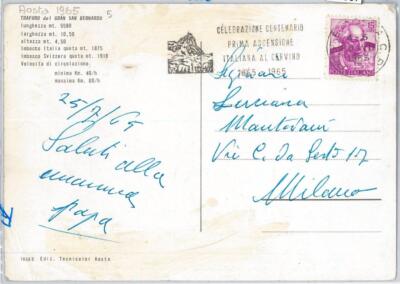 Aosta 1965
5
TRAFORO del GRAN SAN BERNARDO
lunghezza mt. 5580
larghezza mt. 10,50
altezza mt. 4,50
imbocco Italia quota mt. 1875
imbocco Svizzero quota mt. 1918
Velocità di circolazione.
minima Km. 40/h
massima Km. 80/h
CELEBRAZIONE CENTENARIO
PRIMA ASCENSIONE
ITALIANA AL CERVINO
1865 1965
25/7/65
Saluti alla
mamma
papa
Milano
Ediz. Aosta